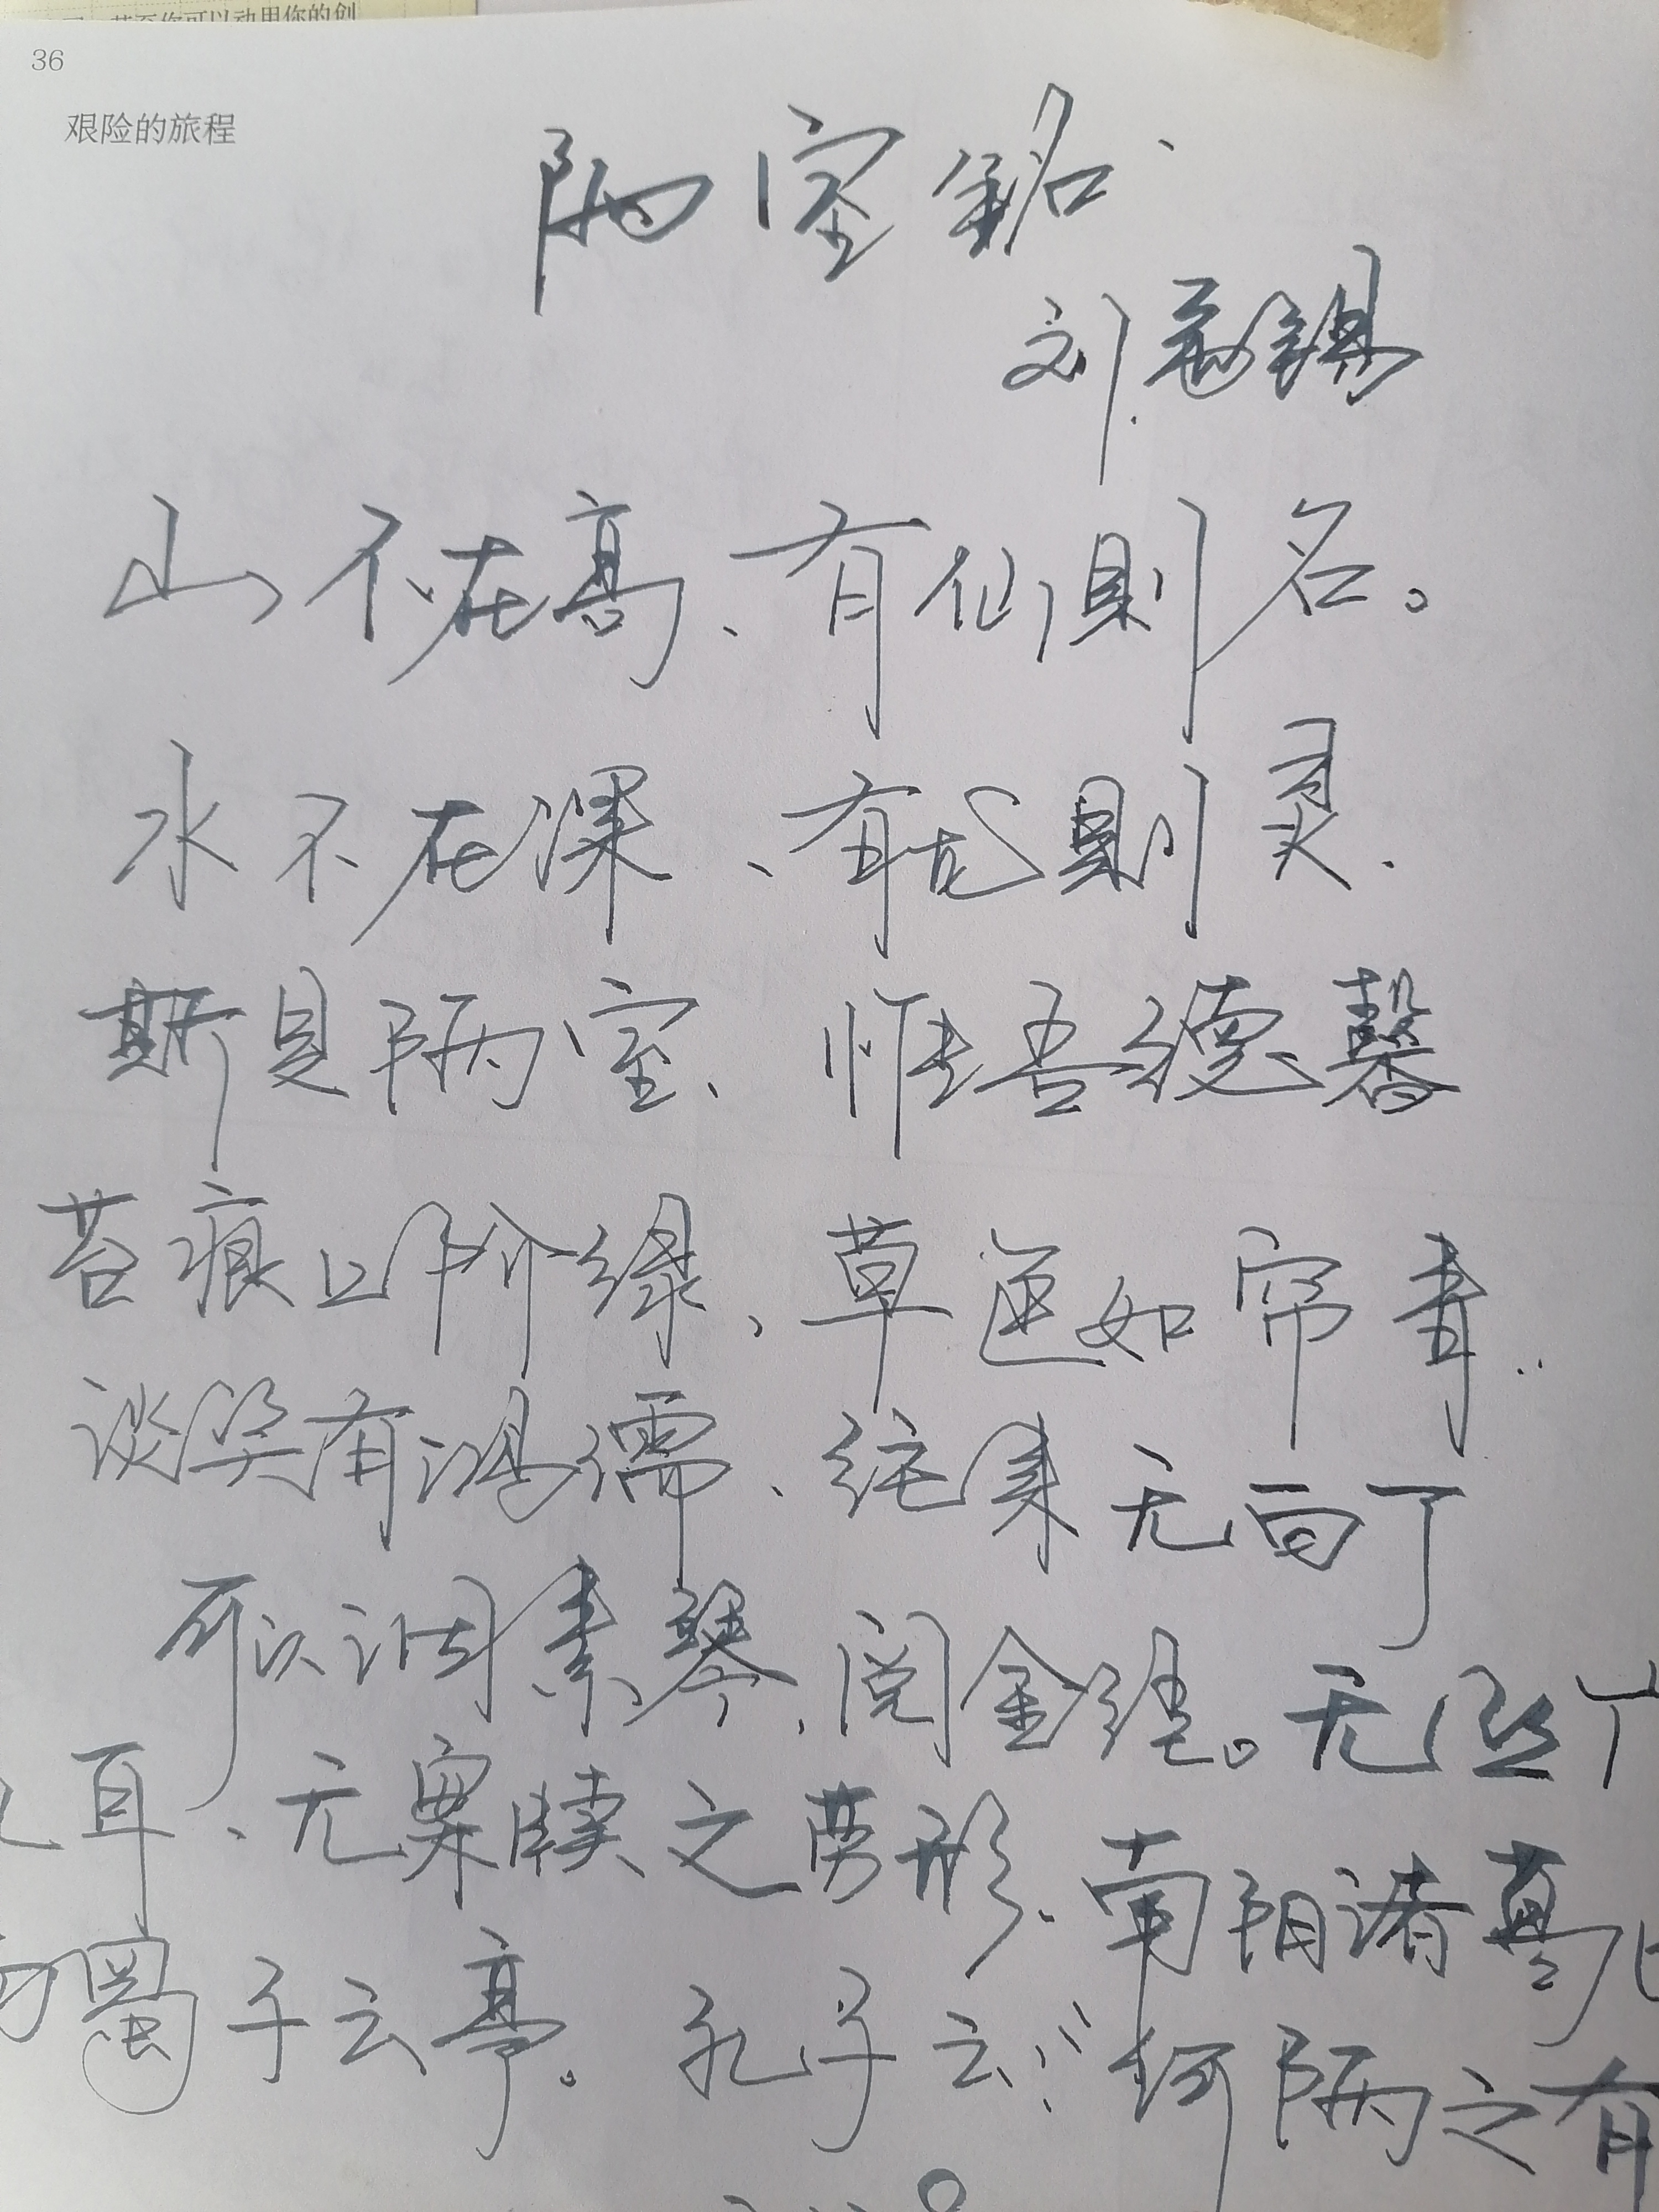 甚至你可以动用你的创
36
艰险的旅程
陋室铭
刘禹锡
山不在高、有仙则名。
水不在深、有龙则灵.
斯是陋室、惟吾德馨
苔痕上阶绿、草色如帘青..
谈笑有鸿儒、往来无白丁
可以调素琴、阅金经。无丝竹
之耳、无案牍之劳形、南阳诸葛
西蜀子云亭。孔子云:"何陋之有